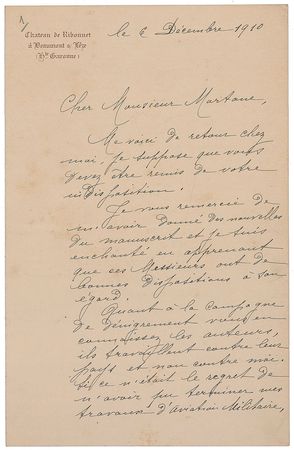 Chateau de Ribonnet
à Beaumont s/ Lèze
(Hte Garonne)
le 6 Décembre 1910
Cher Monsieur Martane,
Me voici de retour chez
moi, je suppose que vous
devez être remis de votre
indisposition.
Je vous remercie de
m'avoir donné des nouvelles
du manuscrit et je suis
enchanté en apprenant
que ces Messieurs ont de
bonnes dispositions à son
égard.
Quant à la campagne
de dénigrement vous en
connaissez les auteurs,
ils travaillent contre leur
pays et non contre moi.
Si ce n'était le regret de
n'avoir pu terminer mes
travaux d'Aviation Militaire,